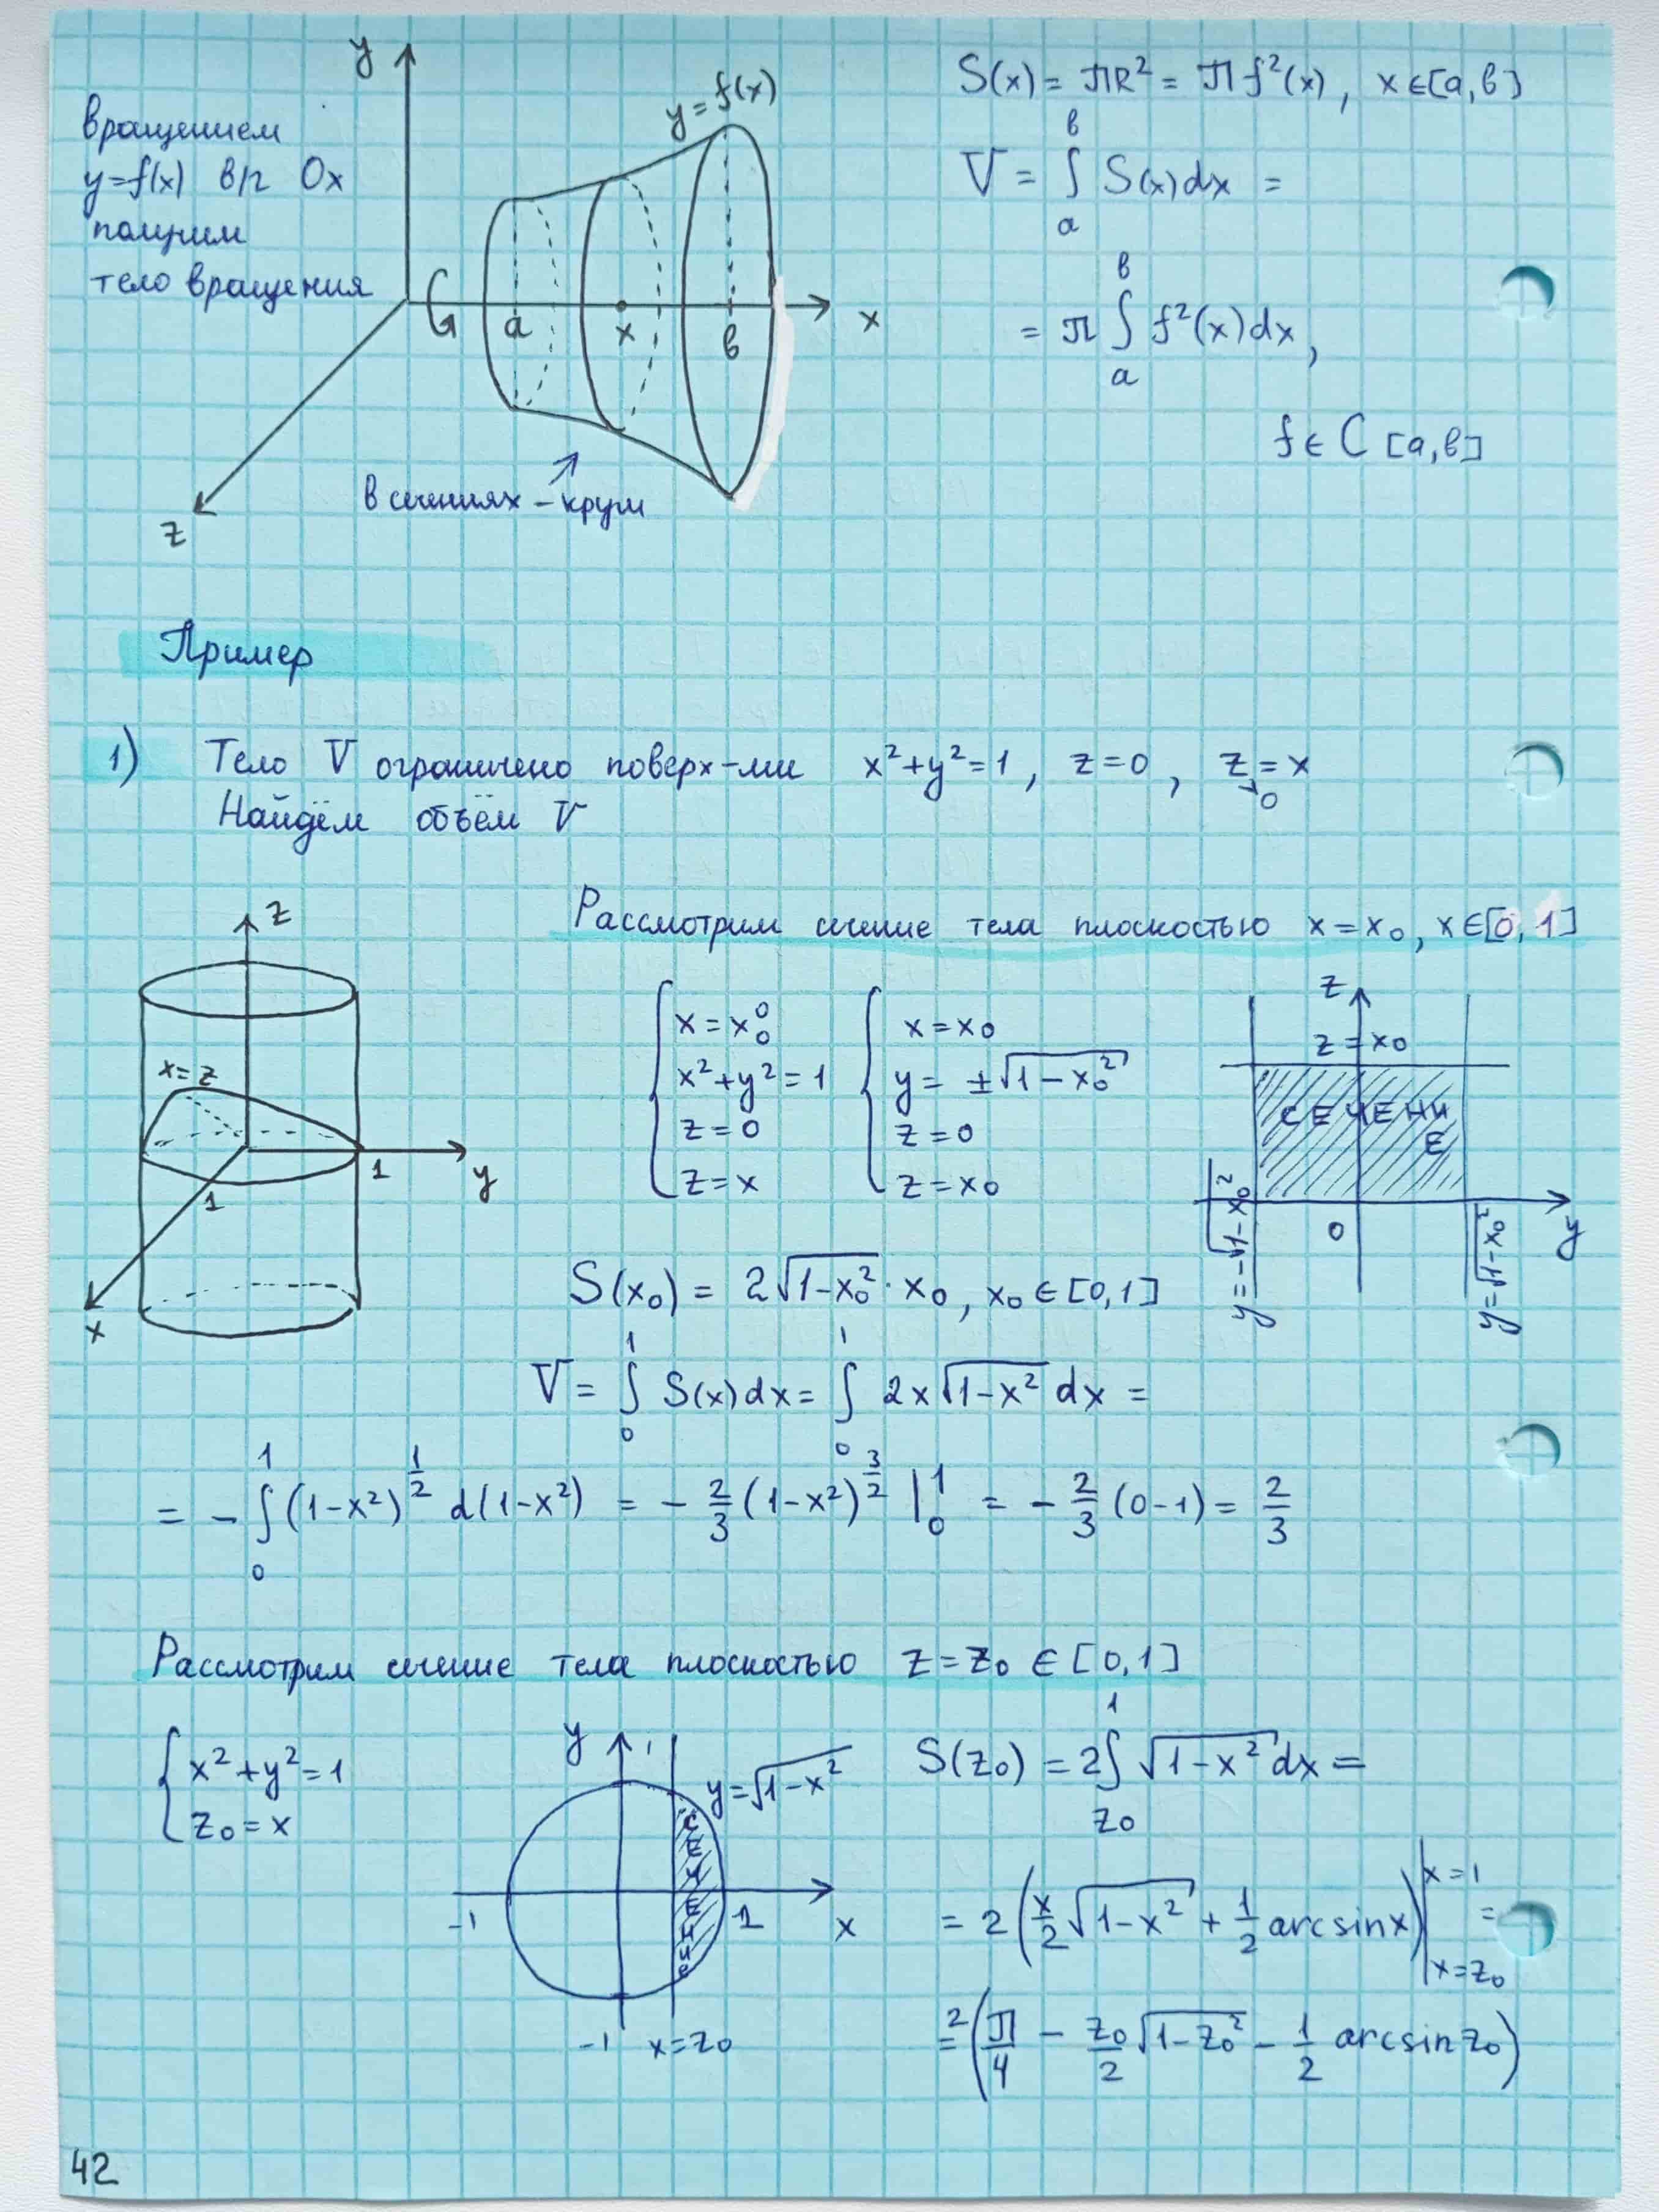 вращением
y=f(x) вр Ox
получим
тело вращения
y
y=f(x)
a
x
в
x
z
в сечениях – круги
S(x) = πR² = π f²(x), x∈[a,в]
V = ∫ₐᵇ S(x)dx =
= π ∫ₐᵇ f²(x)dx,
f ∈ C [a,в]
Пример
1) Тело V ограничено поверх-ми x²+y²=1, z=0, z=x
≥0
Найдём объём V
Рассмотрим сечение тела плоскостью x=x₀, x∈[0,1]
z
x=z
1
1
y
x
{ x=x₀
x²+y²=1
z=0
z=x
{ x=x₀
y=±√(1-x₀²)
z=0
z=x₀
z
z=x₀
СЕЧЕНИЕ
0
y
y=-√(1-x₀²)
y=√(1-x₀²)
S(x₀) = 2√(1-x₀²)·x₀, x₀∈[0,1]
V = ∫₀¹ S(x)dx = ∫₀¹ 2x√(1-x²) dx =
= -∫₀¹ (1-x²)^(1/2) d(1-x²) = -2/3 (1-x²)^(3/2) |₀¹ = -2/3 (0-1) = 2/3
Рассмотрим сечение тела плоскостью z=z₀ ∈ [0,1]
{ x²+y²=1
z₀=x
y
1
y=√(1-x²)
сечение
-1
1
x
-1
x=z₀
S(z₀) = 2∫_{z₀}^1 √(1-x²)dx =
= 2(x/2 √(1-x²) + 1/2 arcsinx)|_{x=z₀}^{x=1} =
= 2(π/4 - z₀/2 √(1-z₀²) - 1/2 arcsin z₀)
42